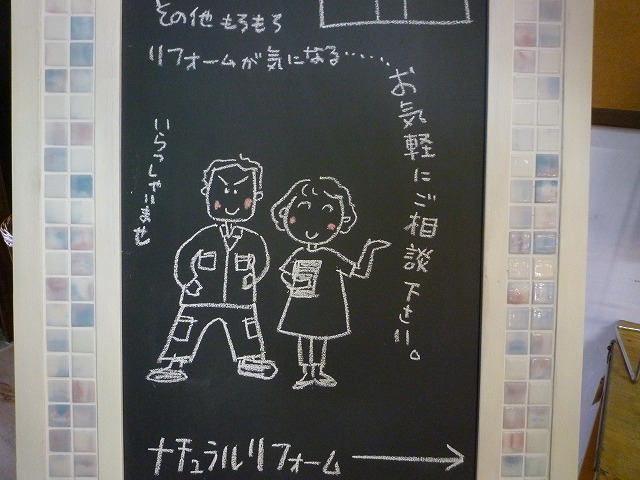 その他もろもろ
リフォームが気になる・・・・・
お気軽にご相談下さい。
いらっしゃいませ
ナチュラルリフォーム →